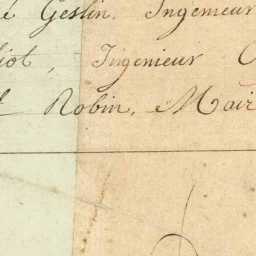 é Geslin, Ingenieur
iot, Ingenieur
Robin, Mair